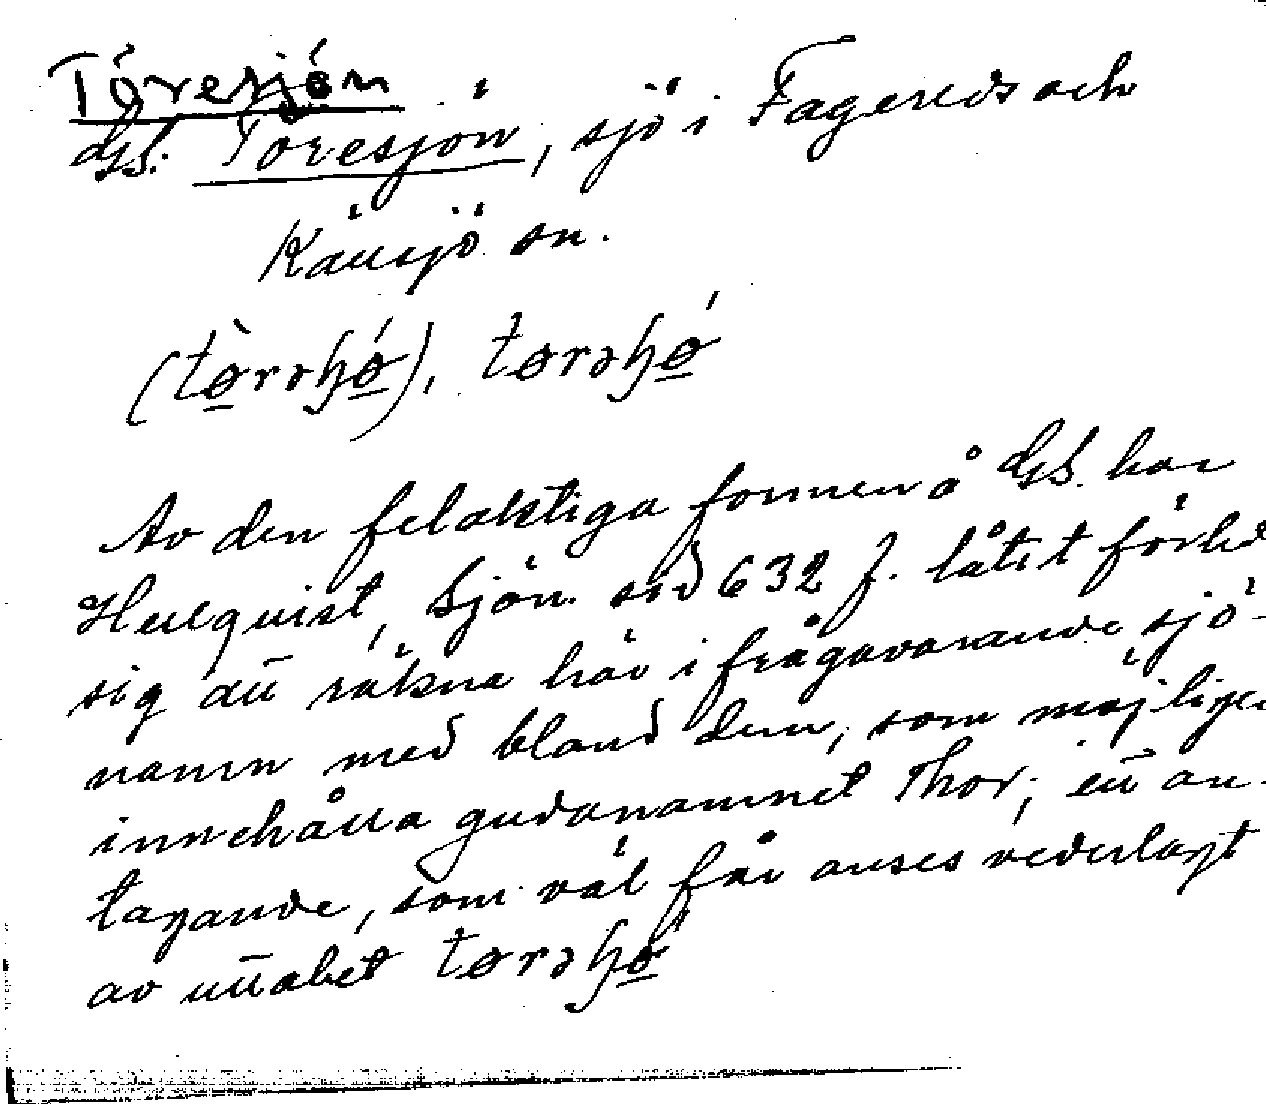 Töresjön
GS. Töresjön, sjö i Fagereds och
Källsjö sn.
(tø̀rəʃǿ), tørəʃǿ
Av den felaktiga formen å GS. har
Hellquist, Sjön. sid 632 f. låtit förle
sig att räkna här ifrågavarande sjö-
namn med bland dem, som möjligen
innehålla gudanamnet Thor; ett an-
tagande, som väl får anses vederlagt
av uttalet tørəʃǿ